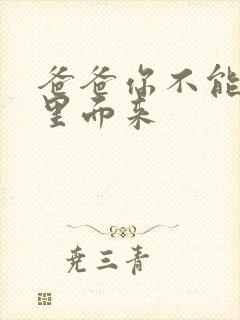 爸爸你不能
里而来
尧三青